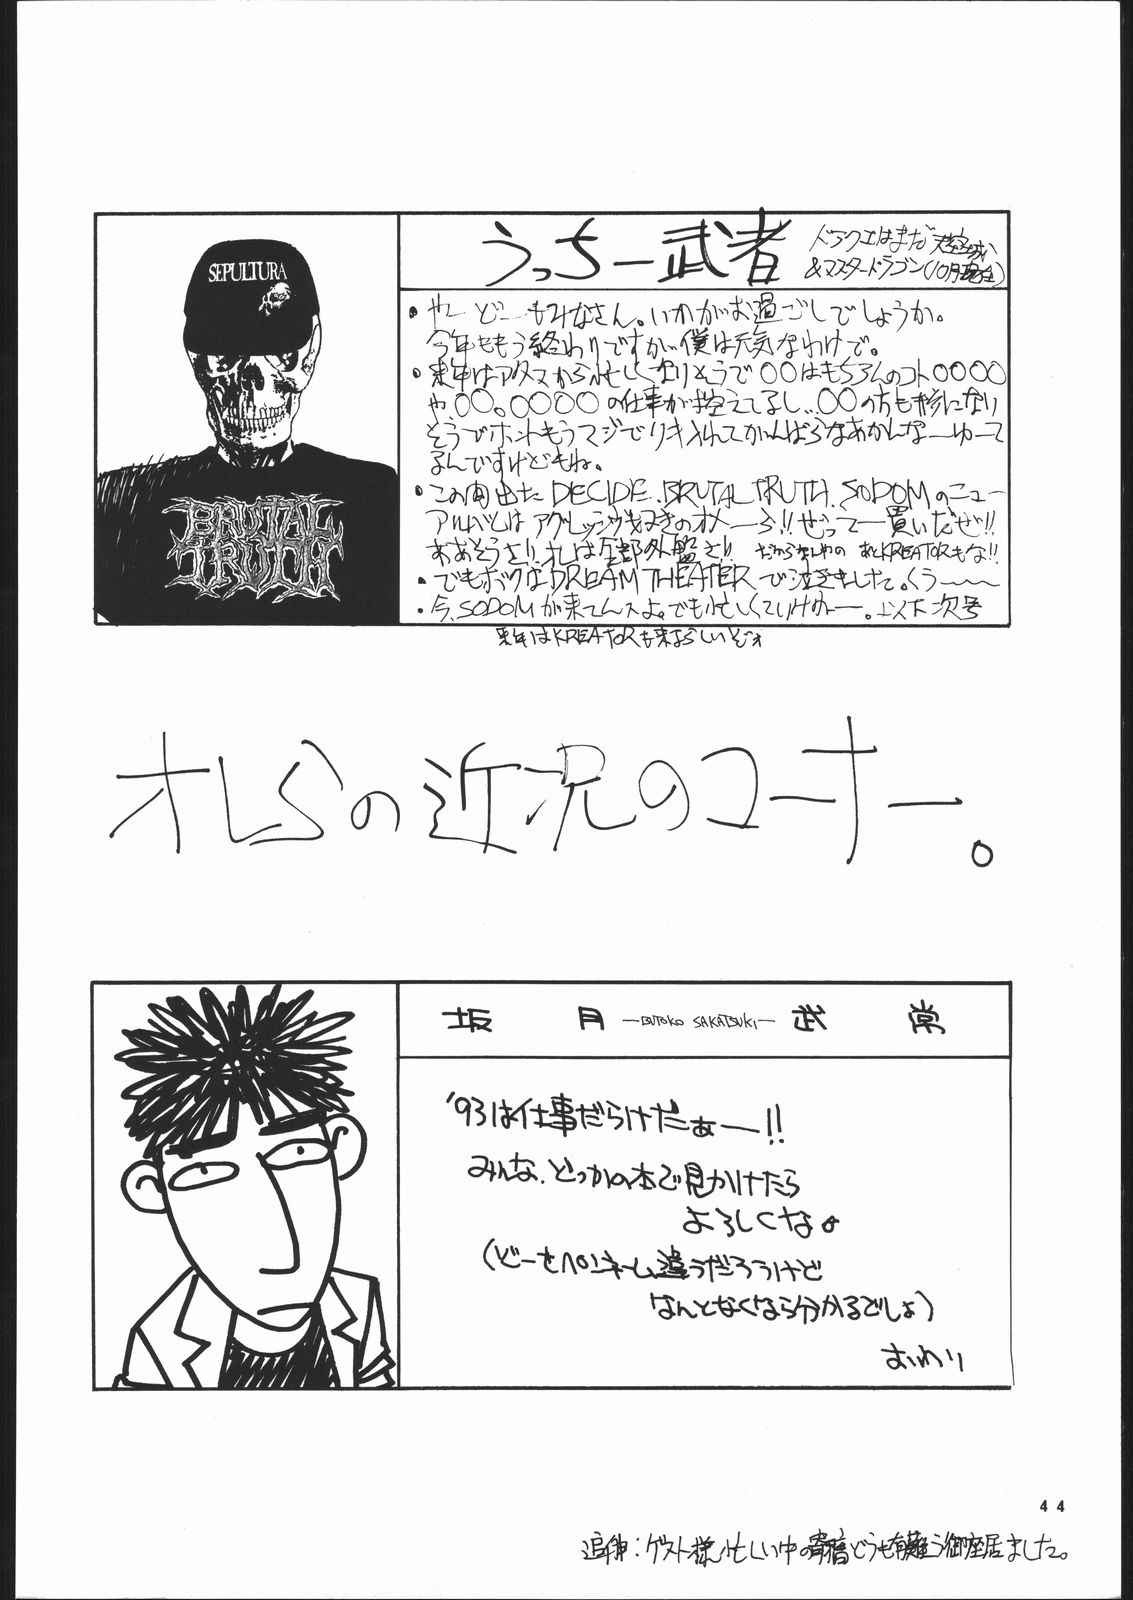 SEPULTURA
BRUTAL
TRUTH
うっちー武者
ドラクエはまだ天空城
&マスタードラゴン(10月現在)
・やーどーもみなさん。いかがお過ごしでしょうか。
今年ももう終わりですが、僕は元気なわけで。
・来年はアタマから忙しくなりそうで〇〇はもちろんのコト〇〇〇〇
や、〇〇。〇〇〇〇の仕事が控えてるし、〇〇の方も
そうでホントもうマジでリキ入れてがんばらなあかんなーゆーて
るんですけどもね。
・この間出たDECIDE、BRUTAL TRUTH、SODOMのニュー
アルバムはアグレッシヴ好きのオメーら!!ぜってー買いだぜ!!
ああそうさ!!オレは全部外盤さ!! あとKREATORもな!!
・でもボクはDREAM THEATERで泣きました。くうー
・今、SODOMが来てんスよ。でも忙しくていけねー。以下次号
来年はKREATORも来るらしいぞォ
オレらの近況のコーナー。
坂月 —BUTOKO SAKATSUKI— 武常
'93は仕事だらけだぁー!!
みんな、どっかの本で見かけたら
よろしくな。
(どーせペンネーム違うだろうけど
なんとなくなら分かるでしょ)
おわり
44
追伸:ゲスト様、忙しい中の寄稿どうも有難う御座居ました。